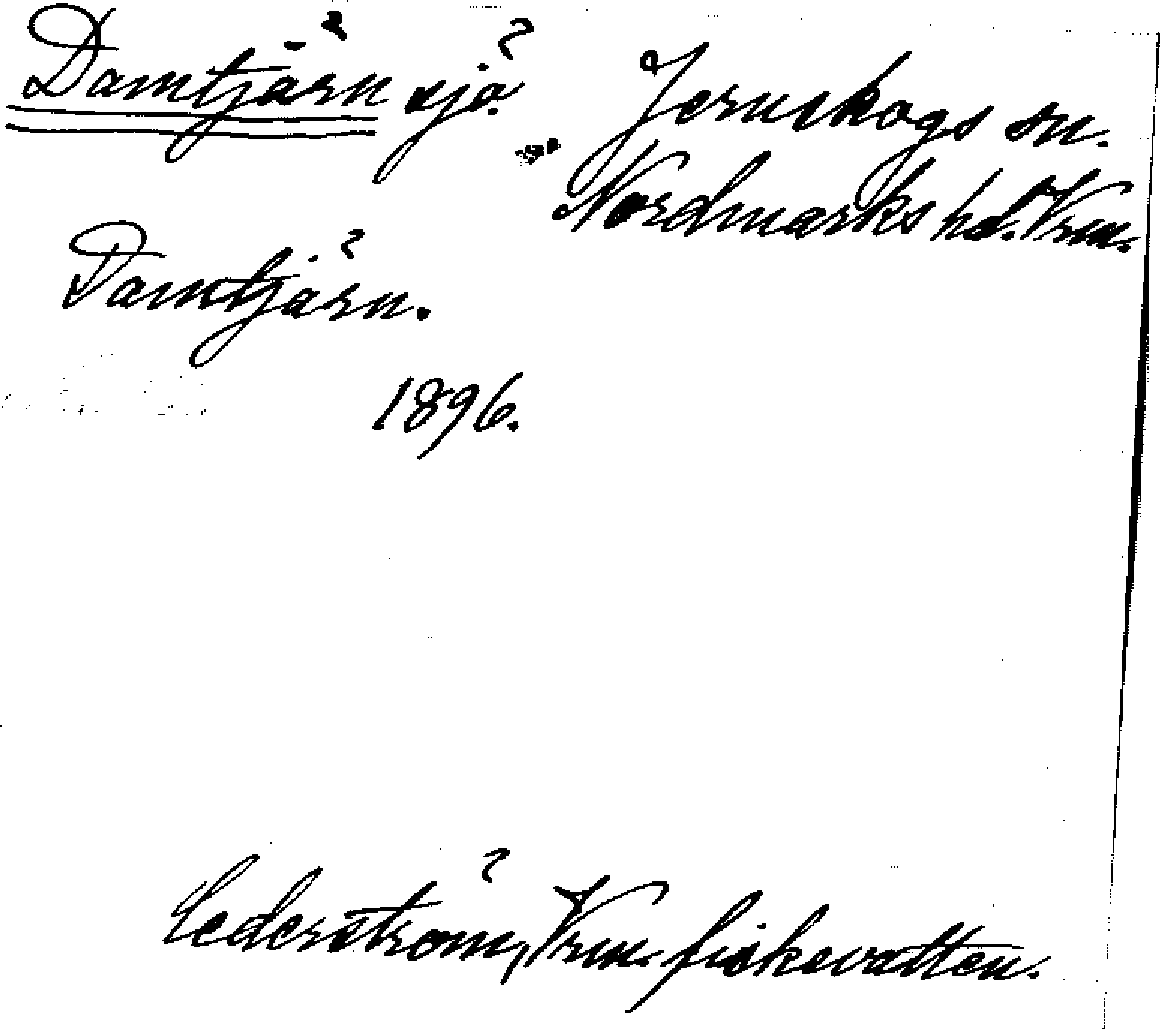 Damtjärn sjö Jernskogs sn.
Nordmarks hd. Vrm.
Damtjärn.
1896.
Cederström, Vrm. fiskevatten.